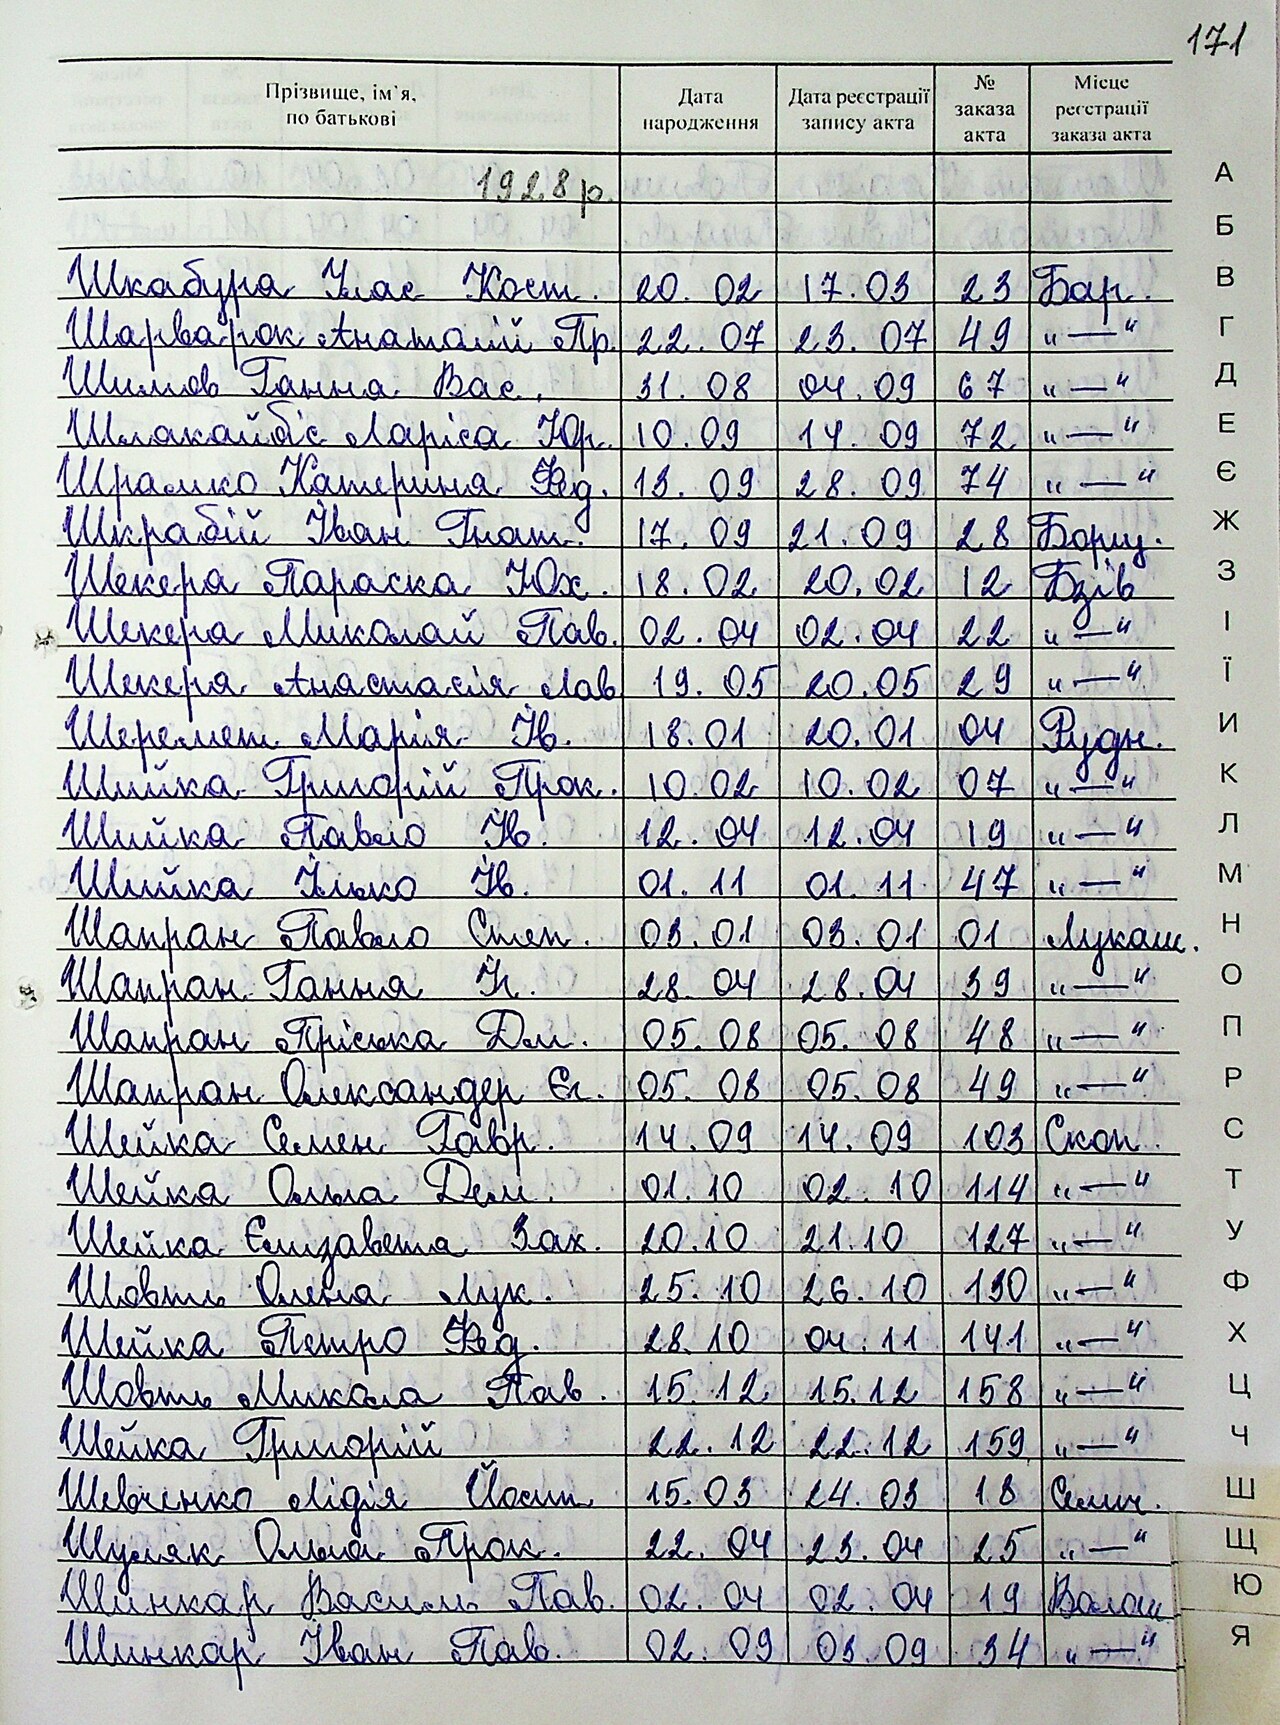 171
Прізвище, ім'я, по батькові | Дата народження | Дата реєстрації запису акта | № заказа акта | Місце реєстрації заказа акта
1928 р.
Шкабура Улас Кост. 20.02 17.03 23 Бар.
Шарварок Анатолій Пр. 22.07 23.07 49 „—"
Шилов Ганна Вас. 31.08 04.09 67 „—"
Шлакайбіс Лариса Юр. 10.09 14.09 72 „—"
Шрамко Катерина Фед. 13.09 28.09 74 „—"
Шкрабій Іван Гнат. 17.09 21.09 28 Борщ.
Шекера Параска Юх. 18.02 20.02 12 Бзів
Шекера Миколай Пав. 02.04 02.04 22 „—"
Шекера Анастасія Лав 19.05 20.05 29 „—"
Шеремет Марія Ів. 18.01 20.01 04 Рудн.
Шийка Григорій Прок. 10.02 10.02 07 „—"
Шийка Павло Ів. 12.04 12.04 19 „—"
Шийка Ілько Ів. 01.11 01.11 47 „—"
Шапран Павло Степ. 03.01 03.01 01 Лукаш.
Шапран Ганна 28.04 28.04 39 „—"
Шапран Пріська Дм. 05.08 05.08 48 „—"
Шапран Олександер Єг. 05.08 05.08 49 „—"
Шейка Семен Гавр. 14.09 14.09 103 Скоп.
Шейка Ольга Дем. 01.10 02.10 114 „—"
Шейка Єлизавета Зах. 20.10 21.10 127 „—"
Шовть Олена Лук. 25.10 26.10 130 „—"
Шейка Петро Фед. 28.10 04.11 141 „—"
Шовть Микола Пав. 15.12 15.12 158 „—"
Шейка Григорій 22.12 22.12 159 „—"
Шевченко Лідія Йосип 15.03 24.03 18 Селич.
Шуляк Ольга Прок. 22.04 23.04 25 „—"
Шинкар Василь Пав. 02.04 02.04 19 Волош
Шинкар Іван Пав. 02.09 03.09 34 „—"
А
Б
В
Г
Д
Е
Є
Ж
З
І
Ї
И
К
Л
М
Н
О
П
Р
С
Т
У
Ф
Х
Ц
Ч
Ш
Щ
Ю
Я